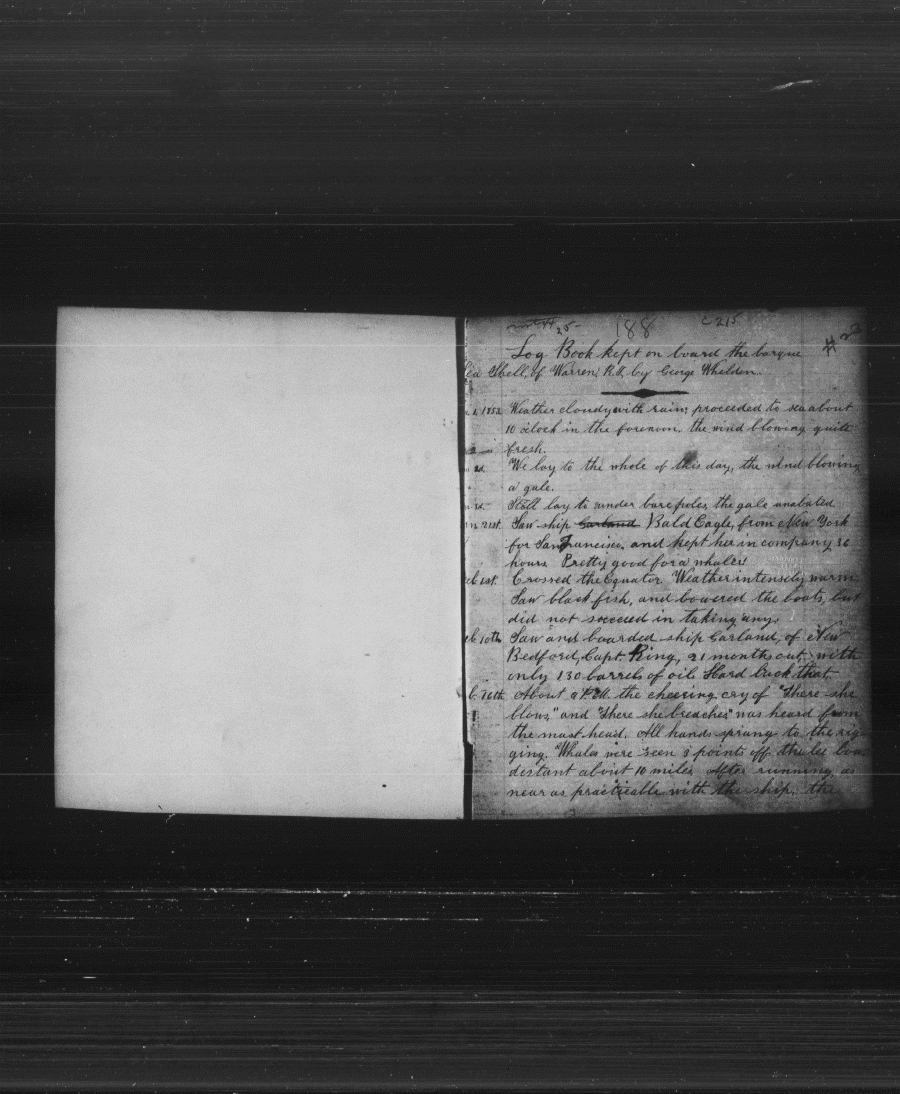 25-
188
C215
Log Book kept on board the barque
Sea Shell, of Warren, R.I. by George Whelden.
1, 1853 Weather cloudy with rain; proceeded to sea about
10 oclock in the forenoon. the wind blowing quite
fresh.
2d We lay to the whole of this day, the wind blowing
a gale.
Still lay to under bare poles, the gale unabated
21st. Saw ship Garland Bald Eagle, from New York
for San Francisco, and kept her in company 36
hours. Pretty good for a whaler
eb 1st. Crossed the Equator. Weather intensely warm
Saw black fish, and lowered the boats, but
did not succeed in taking any.
eb 10th Saw and boarded ship Garland, of New
Bedford, Capt. King, 21 months out, with
only 130 barrels of oil. Hard luck that.
b. 26th About P.M. the cheering cry of "There she
blows," and "There she breaches" was heard from
the mast head. All hands sprang to the rig
ging. Whales were seen 3 points off the lee bow
distant about 10 miles. After running as
near as practicable with the ship, the